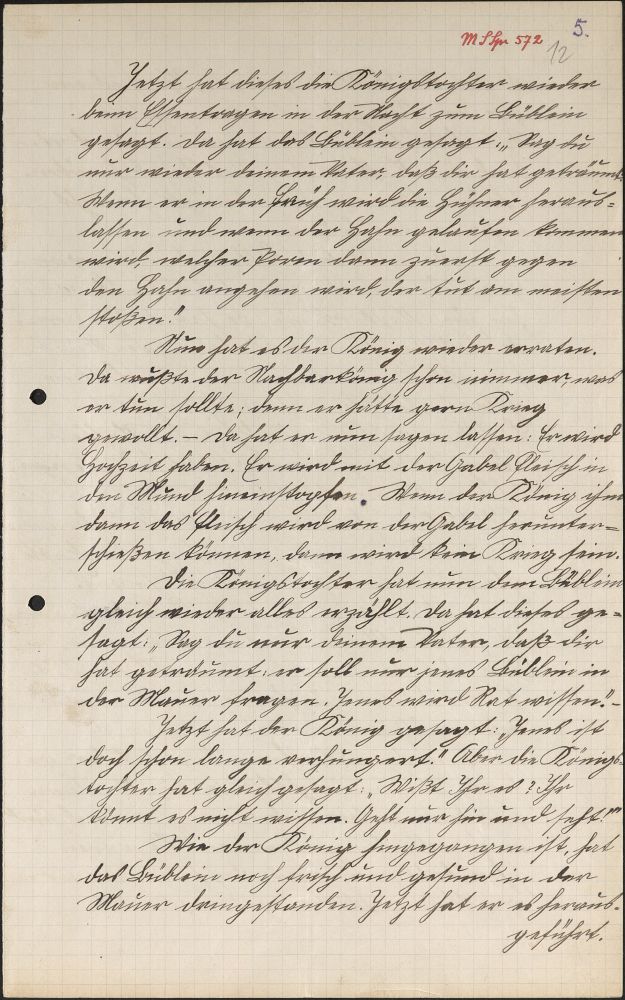 5.
M S Spr 572
12
Jetzt hat dieses die Königstochter wieder
beim Essentragen in der Nacht zum Büblein
gesagt. Da hat das Büblein gesagt: „Sag du
nur wieder deinem Vater, daß dir hat geträumt:
Wenn er in der Früh wird die Hühner heraus-
lassen und wenn der Hahn gelaufen kommen
wird, welcher dann zuerst gegen
den Hahn angehen wird, der tut am meisten
stoßen."
Nun hat es der König wieder erraten.
Da wußte der Nachbarkönig schon nimmer, was
er tun sollte; denn er hätte gern Krieg
gewollt. – Da hat er nun sagen lassen: Er wird
Hochzeit haben. Er wird mit der Gabel Fleisch in
den Mund hineinstopfen. Wenn der König ihm
dann das Fleisch wird von der Gabel herunter-
schießen können, dann wird kein Krieg sein.
Die Königstochter hat nun dem Büblein
gleich wieder alles erzählt. Da hat dieses ge-
sagt: „Sag du nur deinem Vater, daß dir
hat geträumt: er soll nur jenes Büblein in
der Mauer fragen. Jenes wird Rat wissen." –
Jetzt hat der König gesagt: „Jenes ist
doch schon lange verhungert." Aber die Königs-
tochter hat gleich gesagt: „Wißt Ihr es? Ihr
könnt es nicht wissen. Geht nur hin und seht!"
Wie der König hingegangen ist, hat
das Büblein noch frisch und gesund in der
Mauer dringestanden. Jetzt hat er es heraus-
geführt.